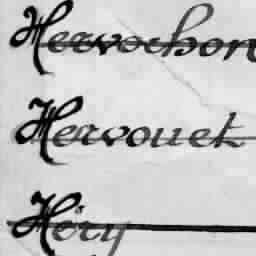 Hervochon
Hervouet
Héry